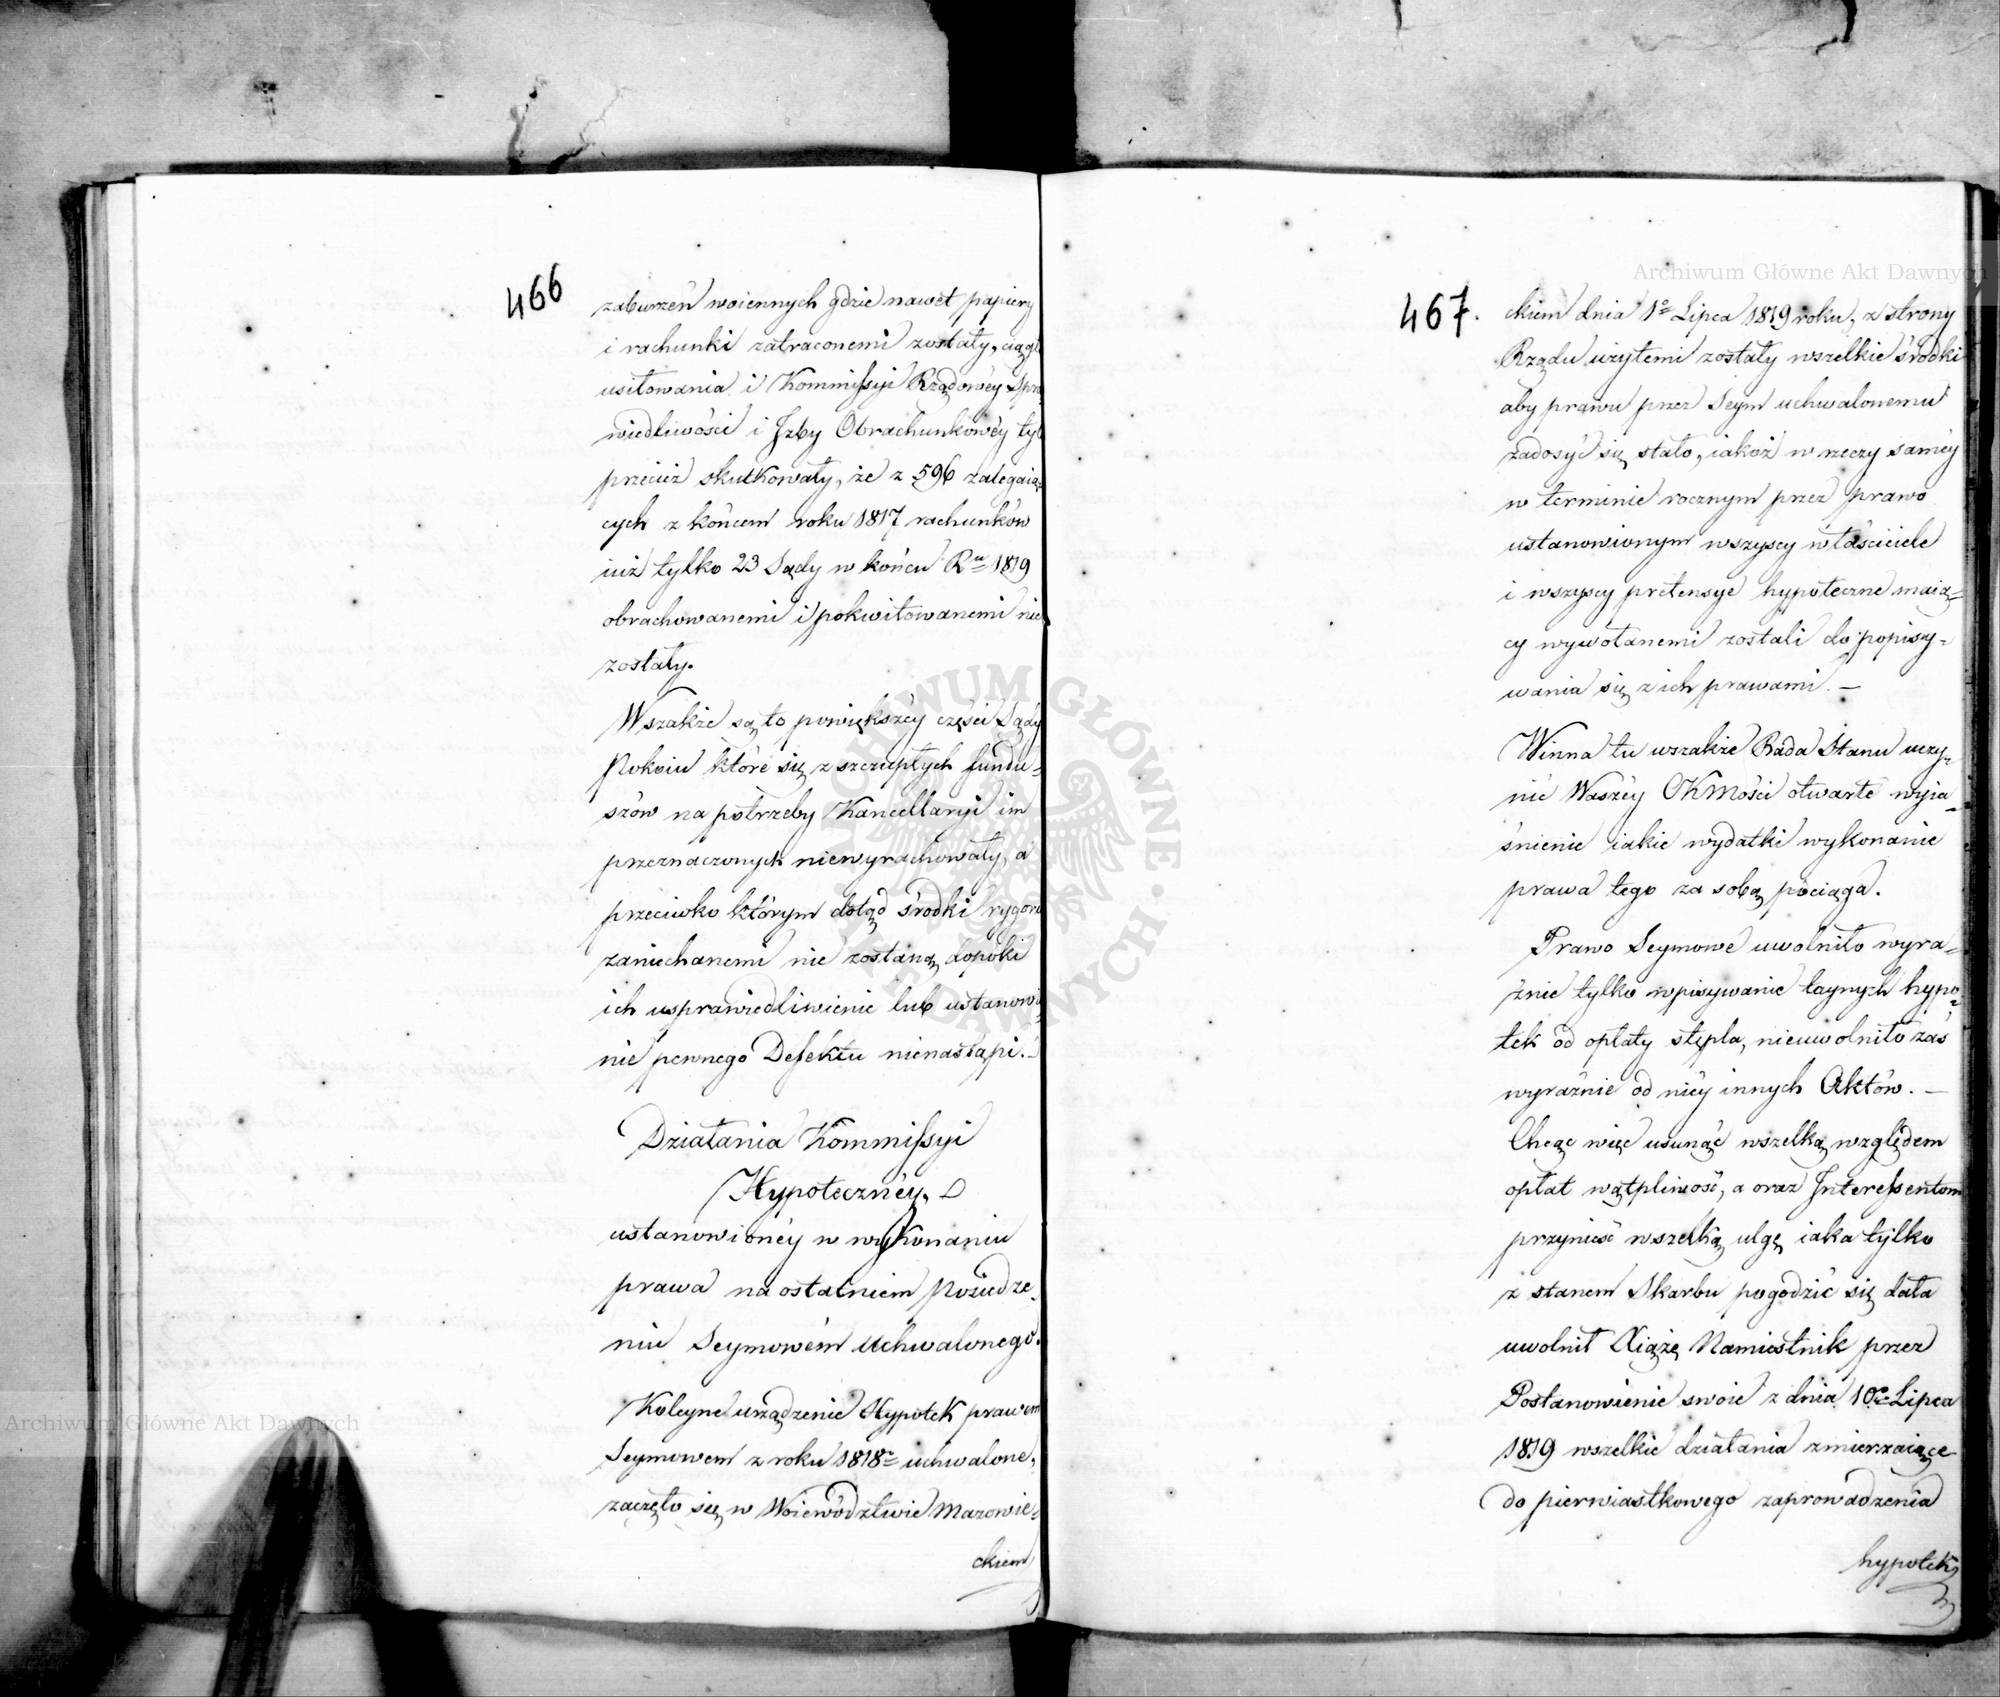 466
zaburzeń woiennych gdzie nawet papiery
i rachunki zatraconemi zostały, ciągł
usiłowania i Kommissyi Rządowéy Spra
wiedliwości i Jzby Obrachunkowéy tyl
przecież skutkowały, że z 596 zalegaią-
cych z końcem roku 1817 rachunków
iuż tylko 23 Sądy w końcu Ru 1819
obrachowanemi i pokwitowanemi nie
zostały.
Wszakże są to powiększéy części Sądy
Pokoiu które się z szczupłych fundu-
szów na potrzeby Kancellaryi im
przeznaczonych niewyrachowały, a
przeciwko którym dotąd środki rygoru
zaniechanemi nie zostaną, dopóki
ich usprawiedliwienie lub ustanowi
nie pewnego Defektu nienastąpi.-
Działania Kommissyi
Hypotecznéy.
ustanowionéy w wykonaniu
prawa na ostatniem Posiedze-
niu Seymowém uchwalonego.
Koleyne urządzenie Hypotek prawem
Seymowem z roku 1818o uchwalone,
zaczęło się w Woiewództwie Mazowie-
ckiem
467.
ckiem dnia 1o Lipca 1819 roku, z strony
Rządu użytemi zostały wszelkie środki
aby prawu przez Seym uchwalonemu
zadosyć się stało, iakoż w rzeczy saméy
w terminie rocznym przez prawo
ustanowionym wszyscy właściciele
i wszyscy pretensye hypoteczne maią-
cy wywołanemi zostali do popisy-
wania się z ich prawami. -
Winna tu wszakże Rada Stanu uczy-
nić Waszéy CKMości otwarte wyia-
śnienie iakie wydatki wykonanie
prawa tego za sobą pociąga.
Prawo Seymowe uwolniło wyra-
źnie tylko wpisywanie taynych hypo-
tek od opłaty stępla, nieuwolniło zaś
wyraźnie od niéy innych Aktów. -
Chcąc więc usunąć wszelką względem
opłat wątpliwość, a oraz Jnteressentom
przynieść wszelką ulgę iaka tylko
z stanem Skarbu pogodzić się dała
uwolnił Xiążę Namiestnik przez
Postanowienie swoie z dnia 10o Lipca
1819 wszelkie działania zmierzaiące
do pierwiastkowego zaprowadzenia
hypotek
Archiwum Główne Akt Dawnych
Archiwum Główne Akt Dawnych
ARCHIWUM GŁÓWNE AKT DAWNYCH